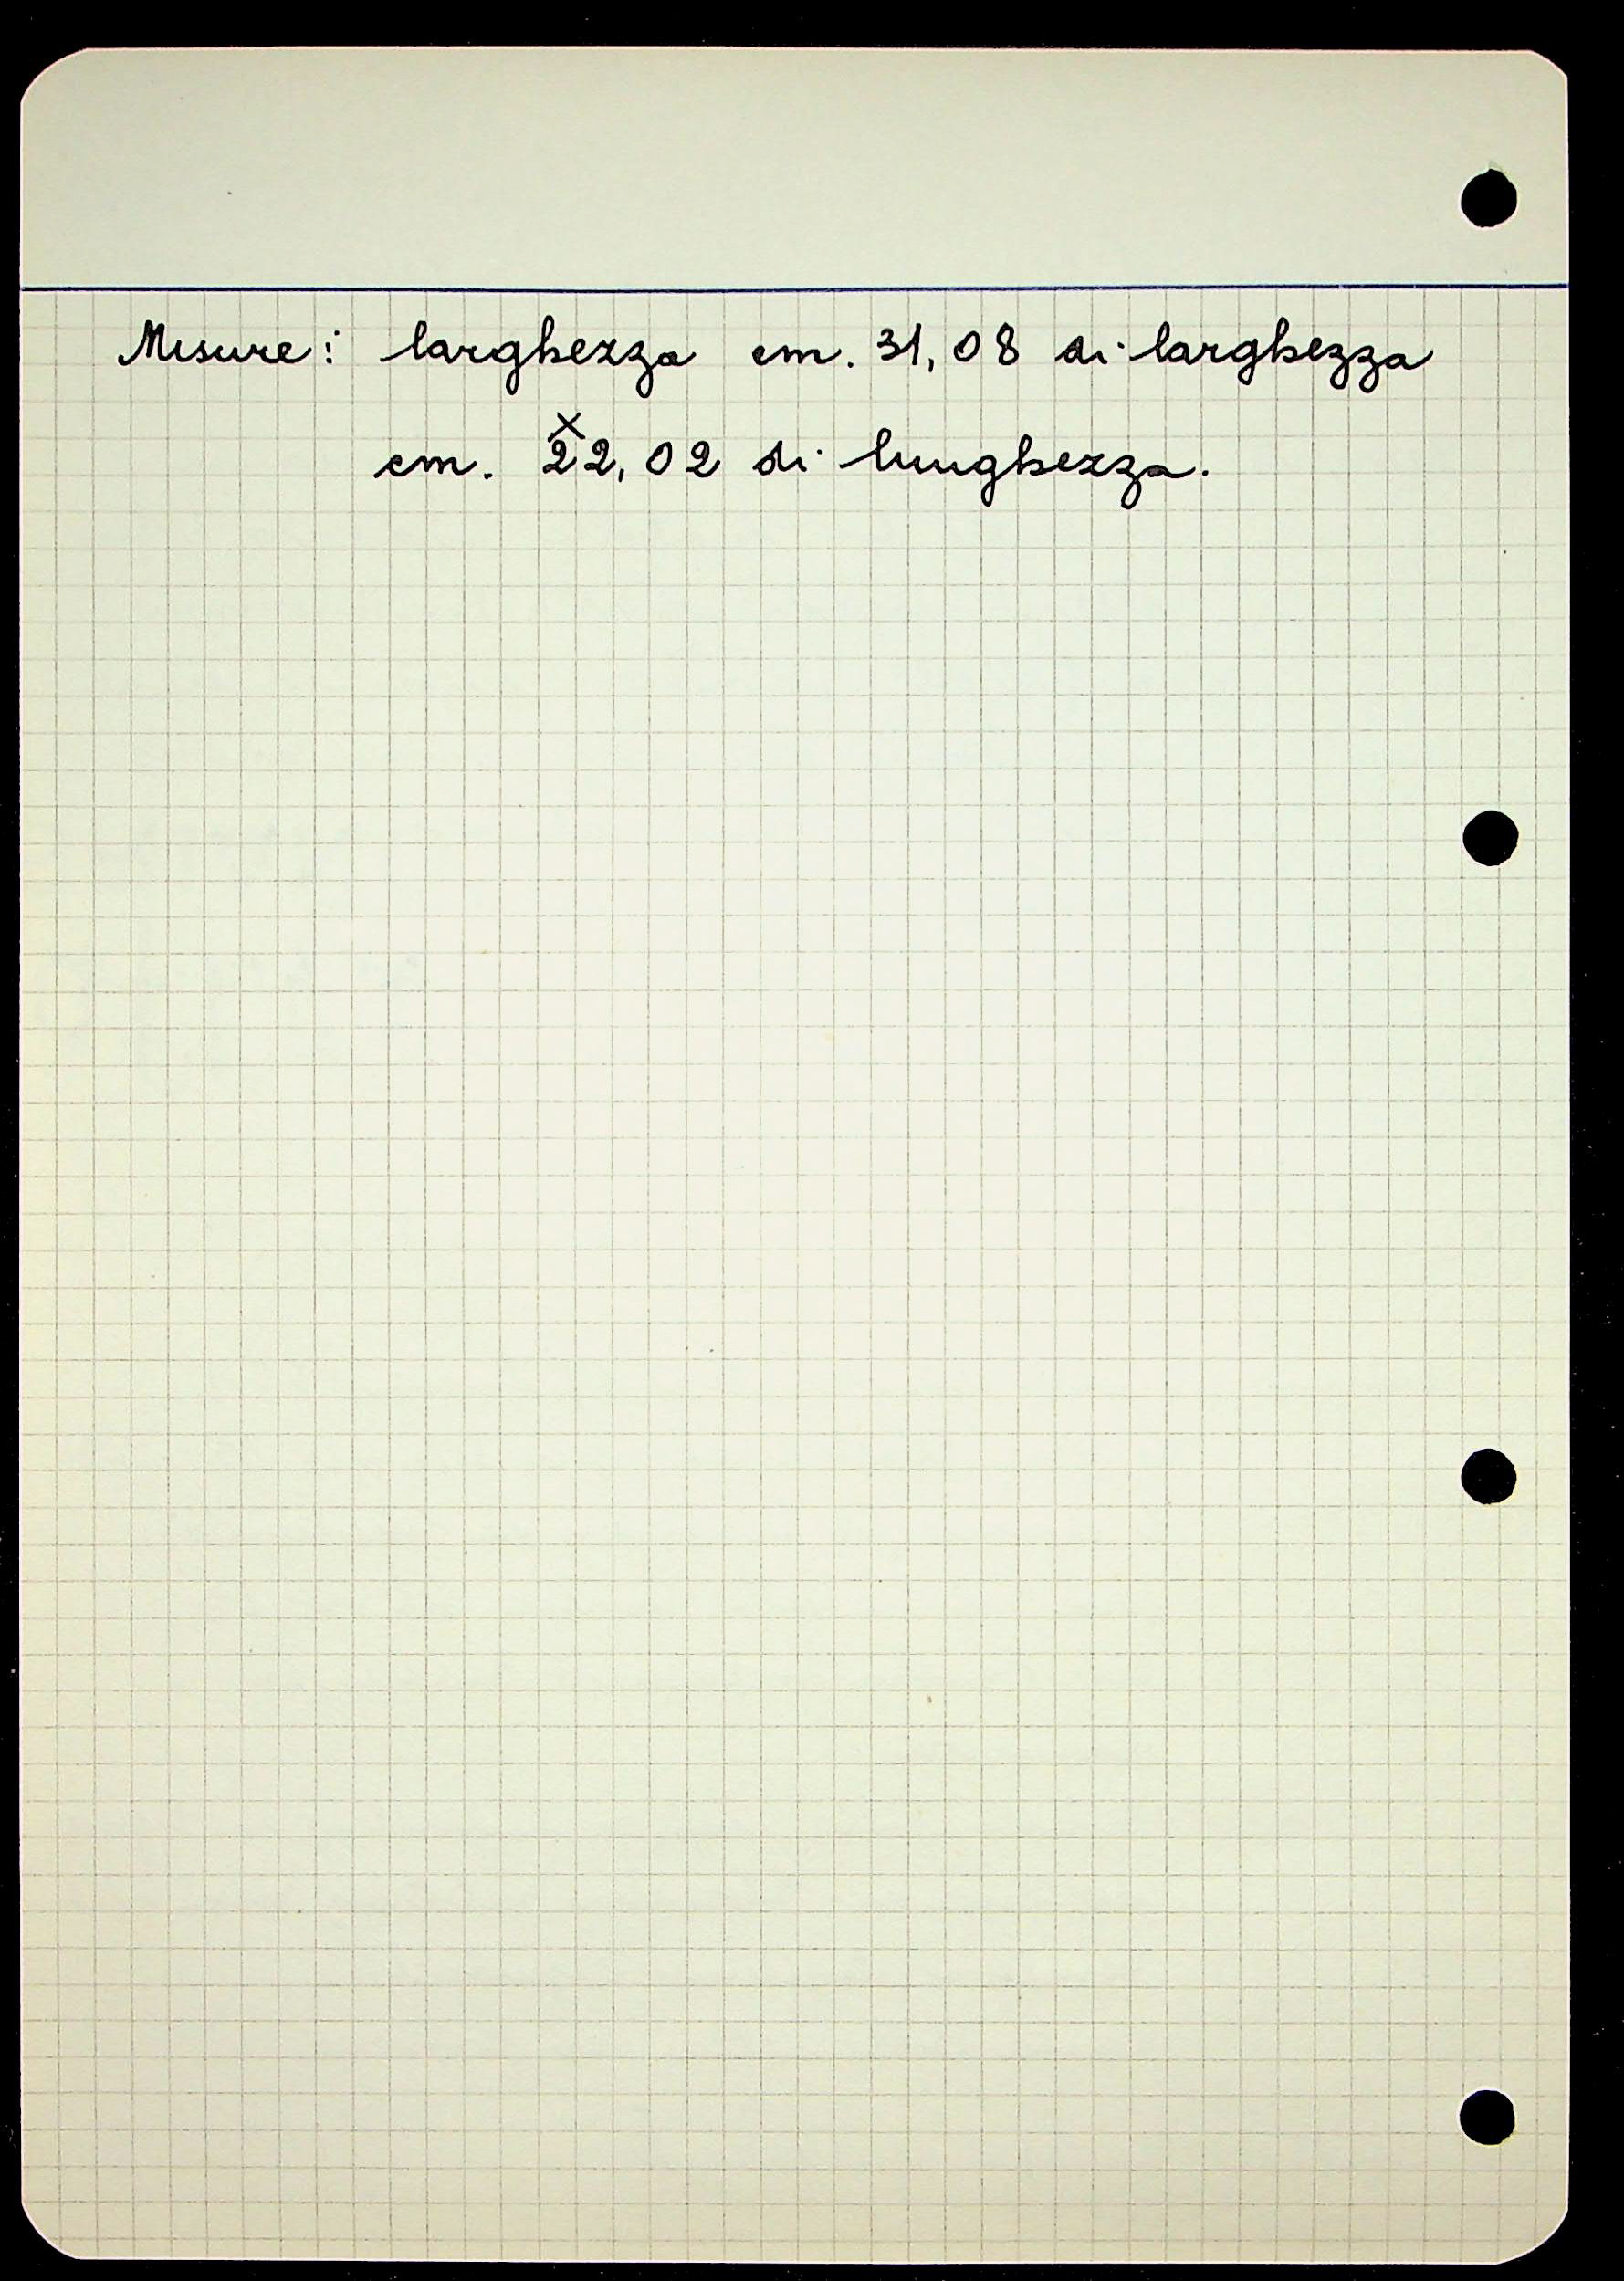 Misure: larghezza cm. 31,08 di larghezza
x
cm. 22,02 di lunghezza.